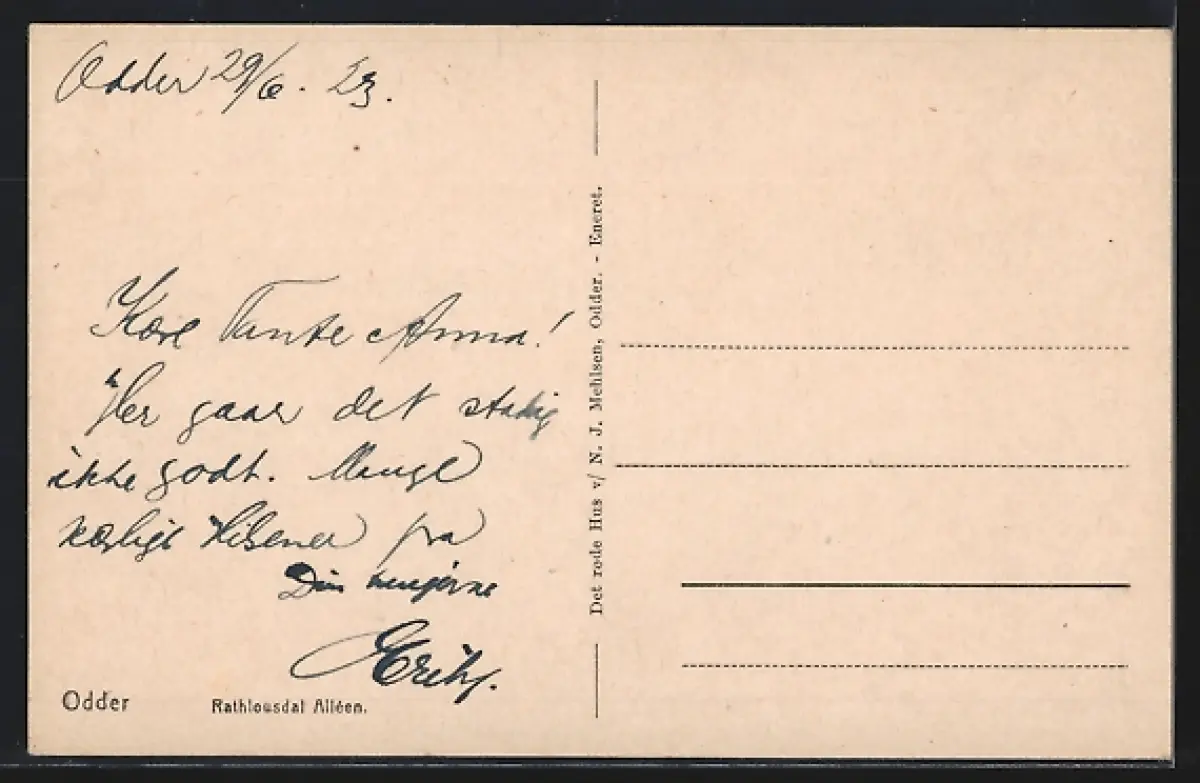 Odder 29/6. 23.
Kære Tante Anna!
Her gaar det stadig
ikke godt. Mange
kærlige Hilsener fra
Din
Det røde Hus v/ N. J. Mehlsen, Odder. - Eneret.
Odder Rathlousdal Alléen.